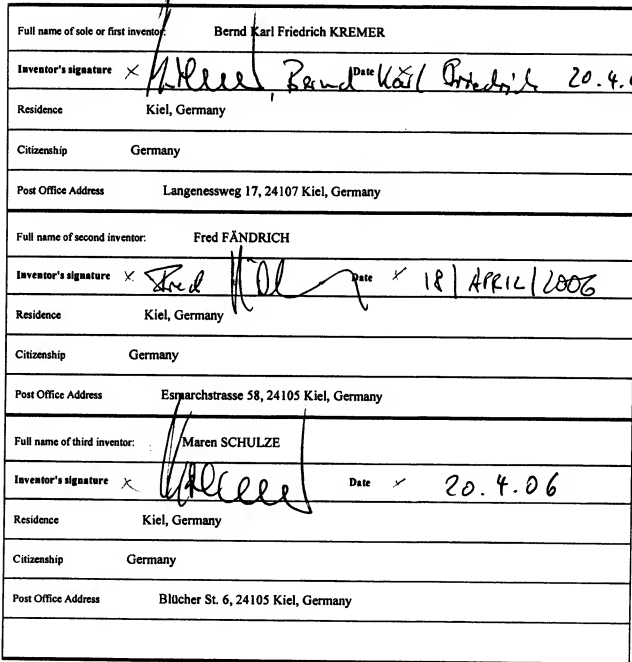 Full name of sole or first inventor: Bernd Karl Friedrich KREMER
Inventor's signature × Bernd Date Karl Friedrich 20.4.
Residence Kiel, Germany
Citizenship Germany
Post Office Address Langenessweg 17, 24107 Kiel, Germany
Full name of second inventor: Fred FÄNDRICH
Inventor's signature × Fred Date × 18/APRIL/2006
Residence Kiel, Germany
Citizenship Germany
Post Office Address Esmarchstrasse 58, 24105 Kiel, Germany
Full name of third inventor: Maren SCHULZE
Inventor's signature × Date × 20.4.06
Residence Kiel, Germany
Citizenship Germany
Post Office Address Blücher St. 6, 24105 Kiel, Germany